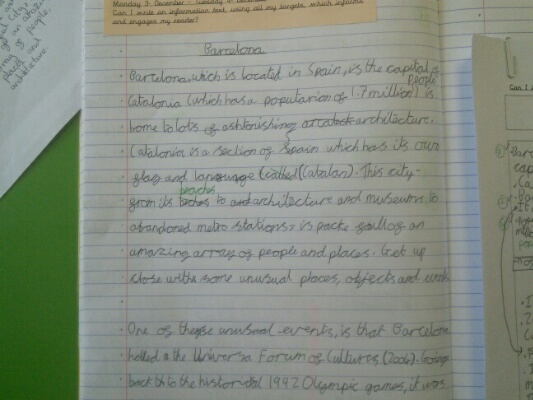 Monday 3rd December - Tuesday 4th December
Can I write an information text, using all my targets, which informs
and engages my reader?
Barcelona
Barcelona, which is located in Spain, is the capital of
people
Catalonia (which has a popularion of 1.7 million) is
home to lots of ashtonishing architecture.
Catalonia is a section of Spain which has its own
flag and language (called (Catalan). This city-
beaches
from its to architecture and museums to
abandoned metro stations, is packe full of an
amazing array of people and places. Get up
close with some unusual places, objects and
One of these unusual events, is that Barcelona
holled a the Universa Forum of Cultures (2004). Going
back to the historical 1992 Olympic games, it was
City
of people
places and
architecture
Can I